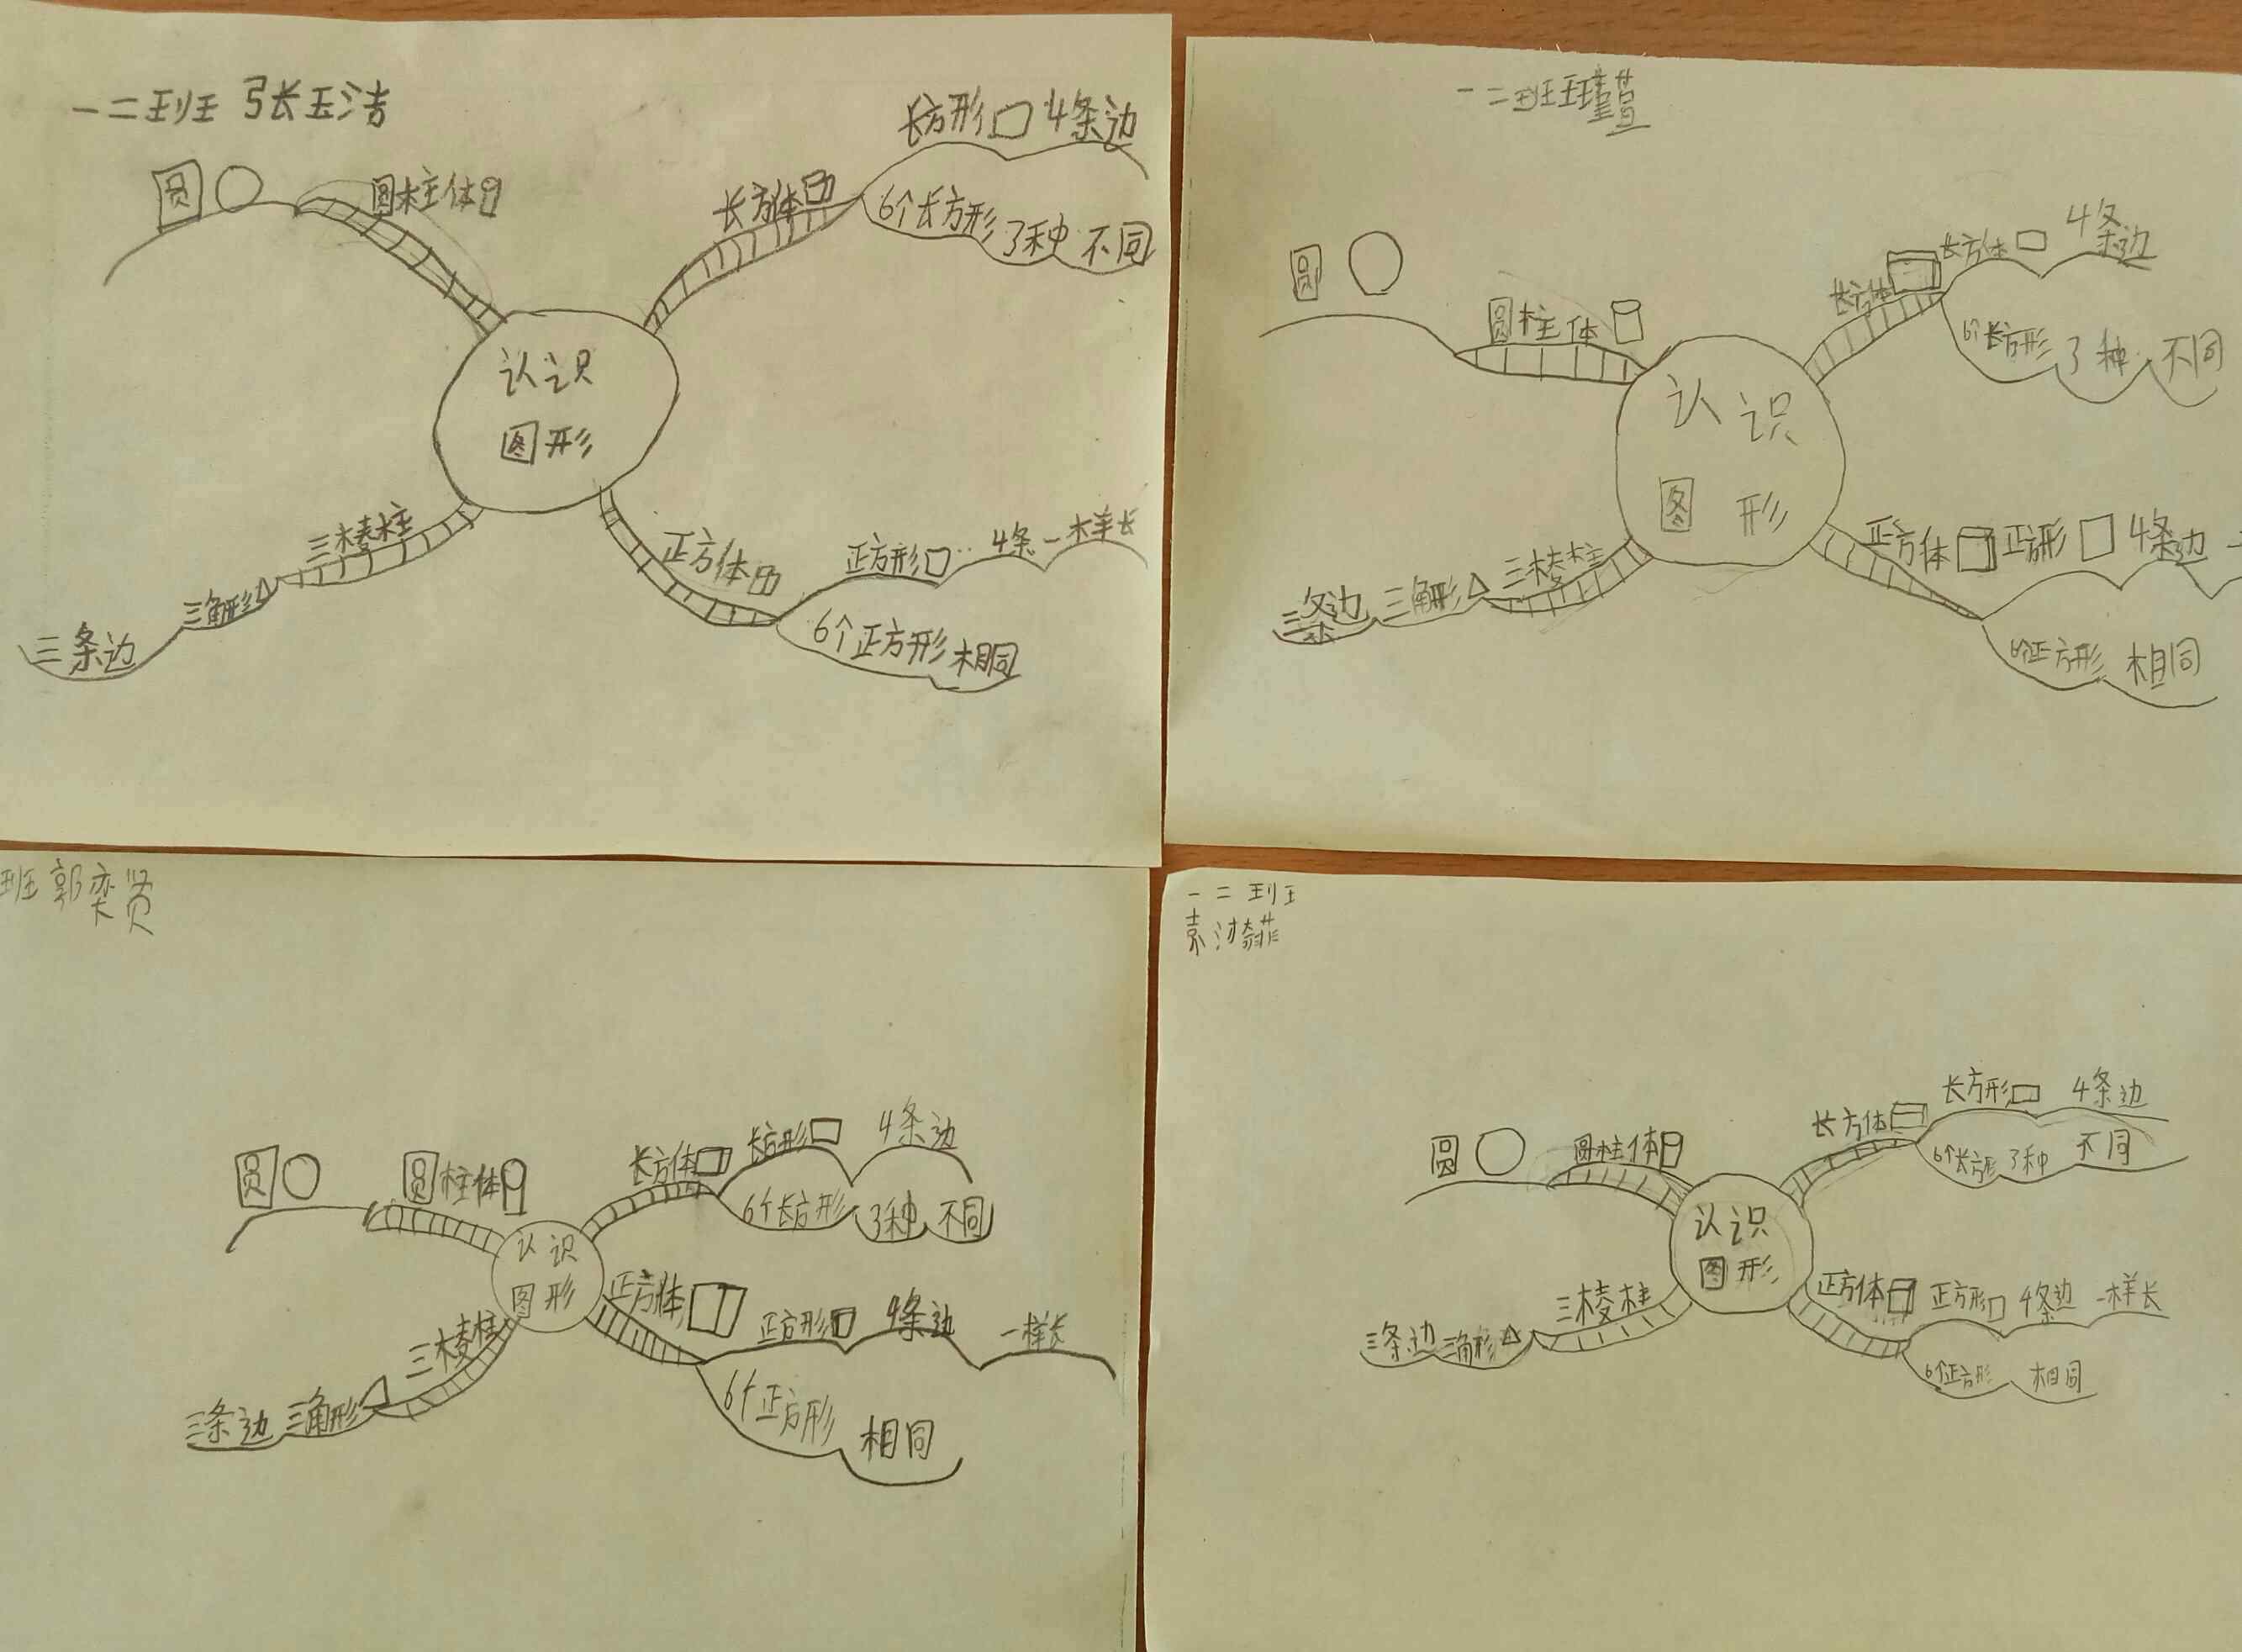 一二班 张玉洁
圆
圆柱体
长方体
长方形 4条边
6个长方形 3种 不同
认识
图形
三棱柱
三角形
三条边
正方体
正方形 4条 一样长
6个正方形 相同
一二班 王瑾萱
圆
圆柱体
长方体
长方体 4条边
6个长方形 3种 不同
认识
图形
三条边 三角形 三棱柱
正方体 正方形 4条边
6个正方形 相同
班 郭奕贤
圆
圆柱体
长方体 长方形 4条边
6个长方形 3种 不同
认识
图形
三条边 三角形 三棱柱
正方体 正方形 4条边 一样长
6个正方形 相同
一二班
袁
圆
圆柱体
长方体 长方形 4条边
6个长方形 3种 不同
认识
图形
三条边 三角形 三棱柱
正方体 正方形 4条边 一样长
6个正方形 相同